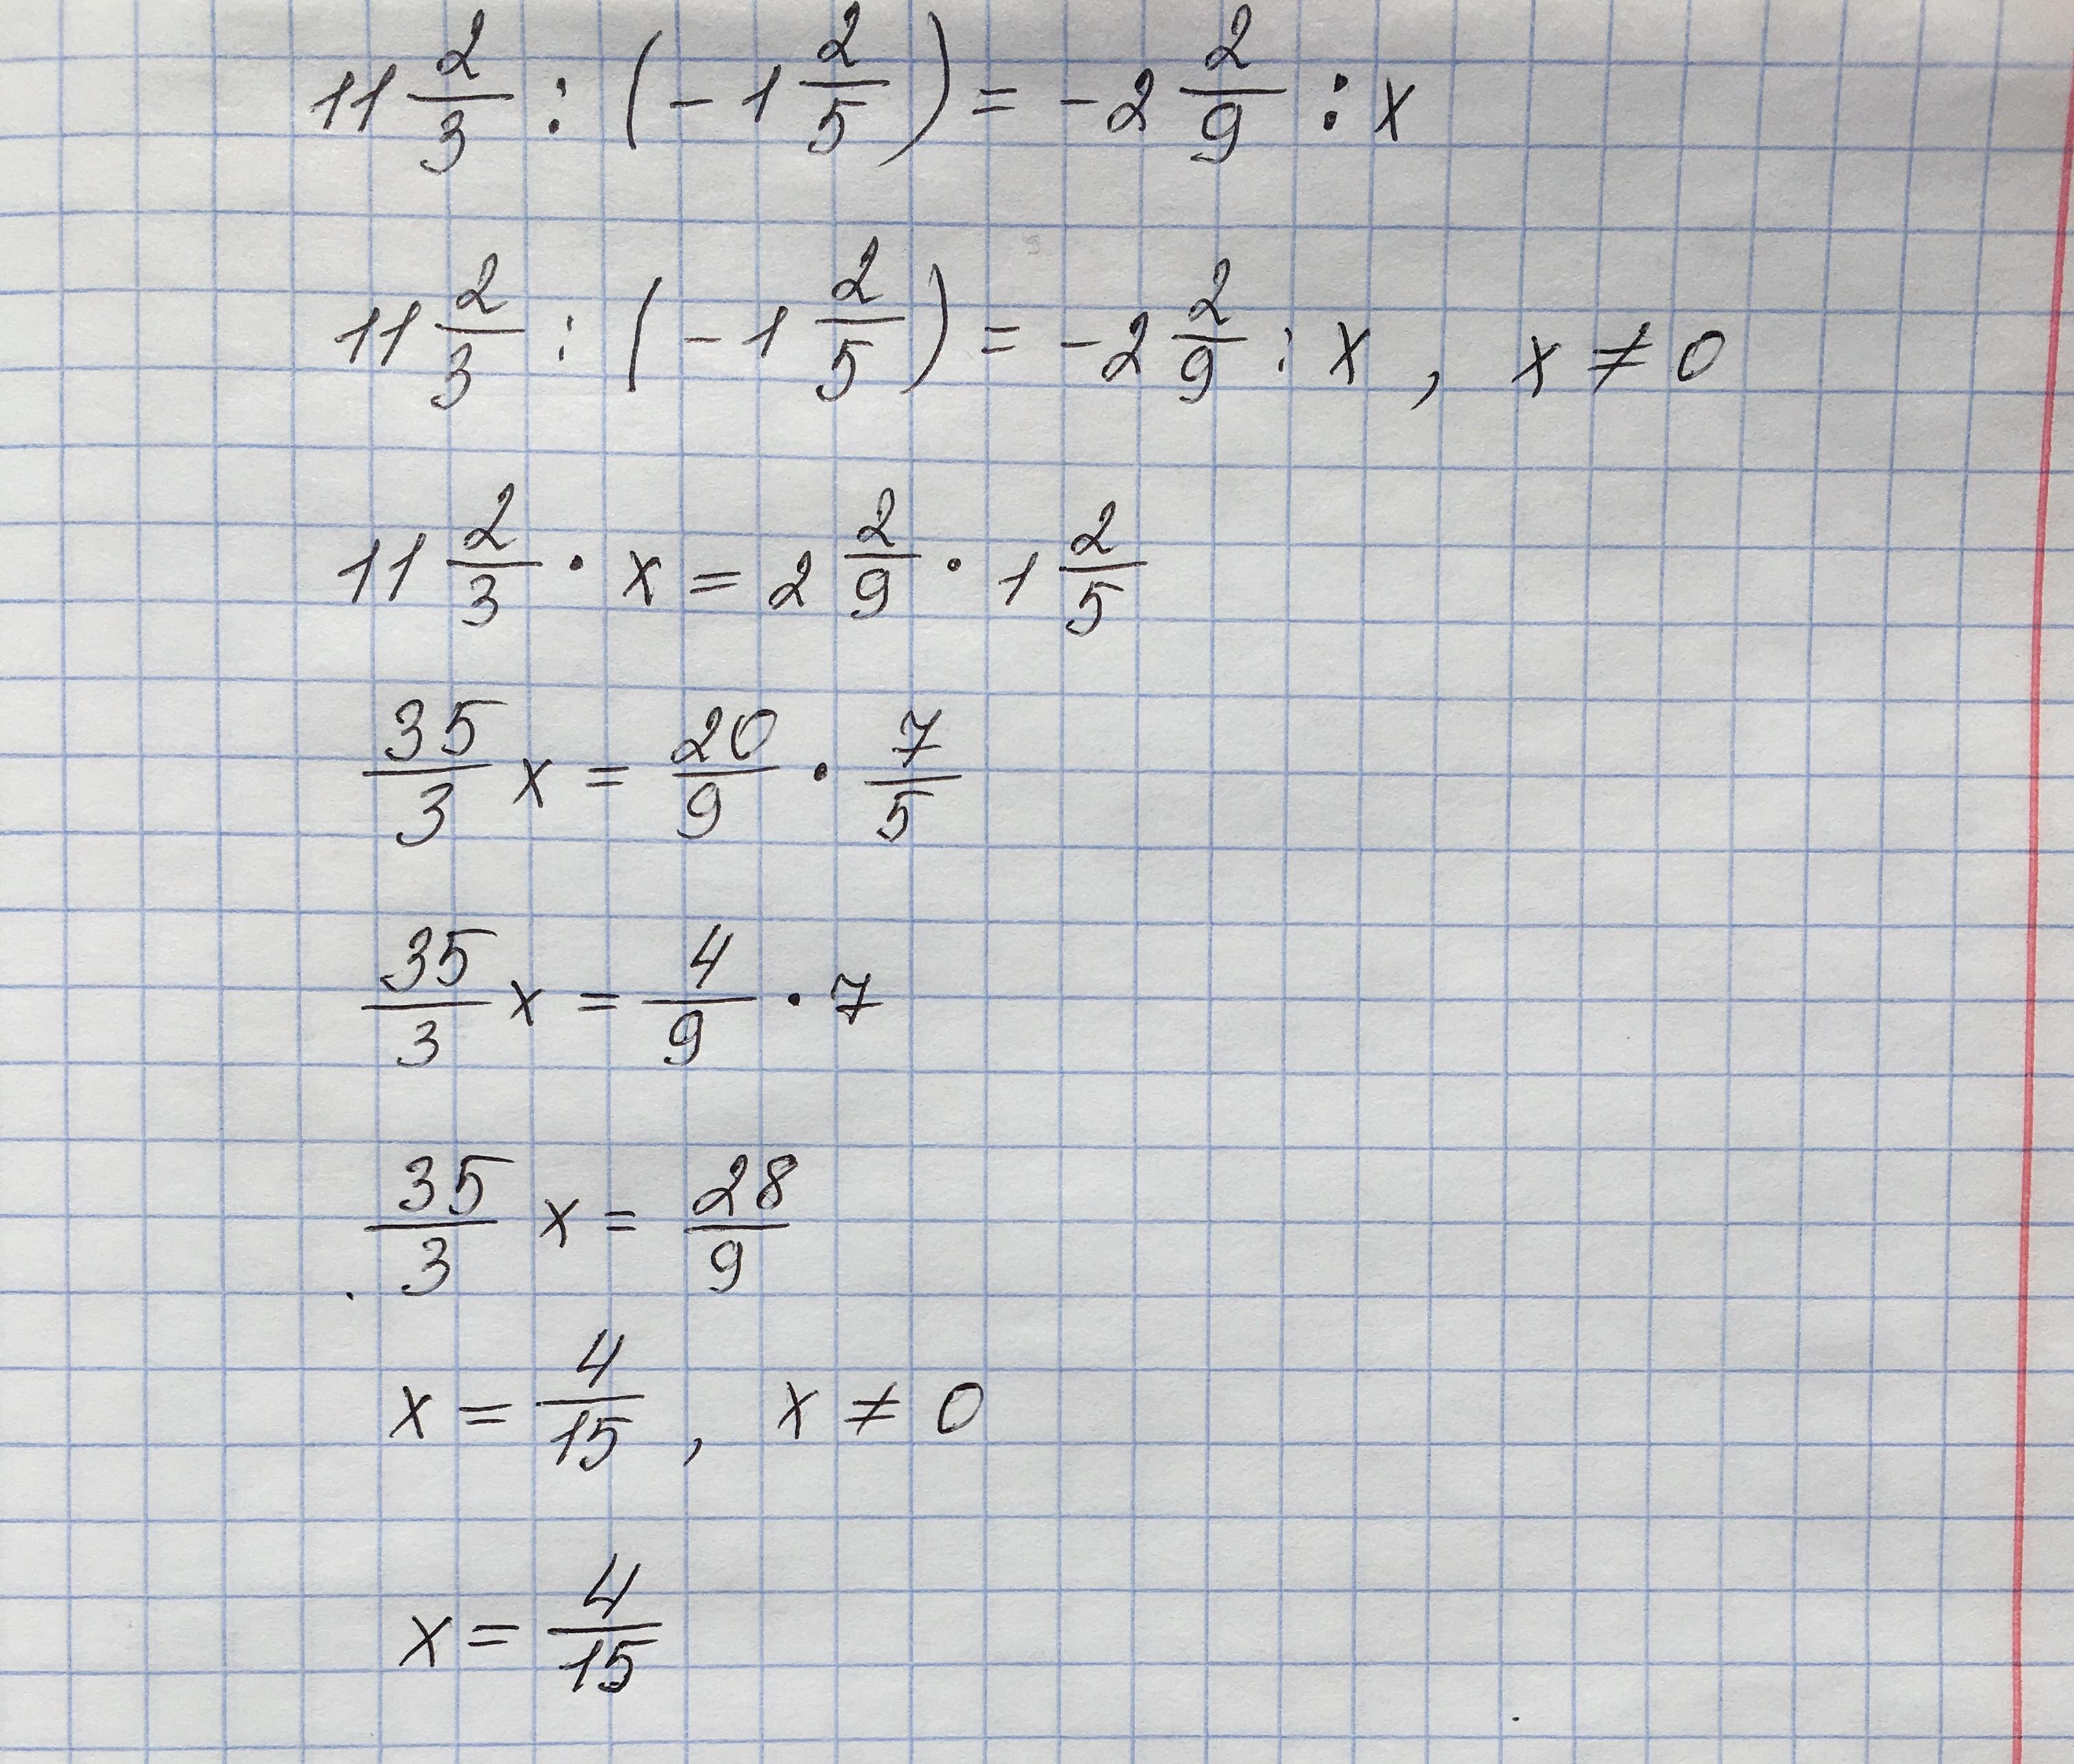 11 2/3 : (-1 2/5) = -2 2/9 : x
11 2/3 : (-1 2/5) = -2 2/9 : x , x ≠ 0
11 2/3 · x = 2 2/9 · 1 2/5
35/3 x = 20/9 · 7/5
35/3 x = 4/9 · 7
35/3 x = 28/9
x = 4/15 , x ≠ 0
x = 4/15